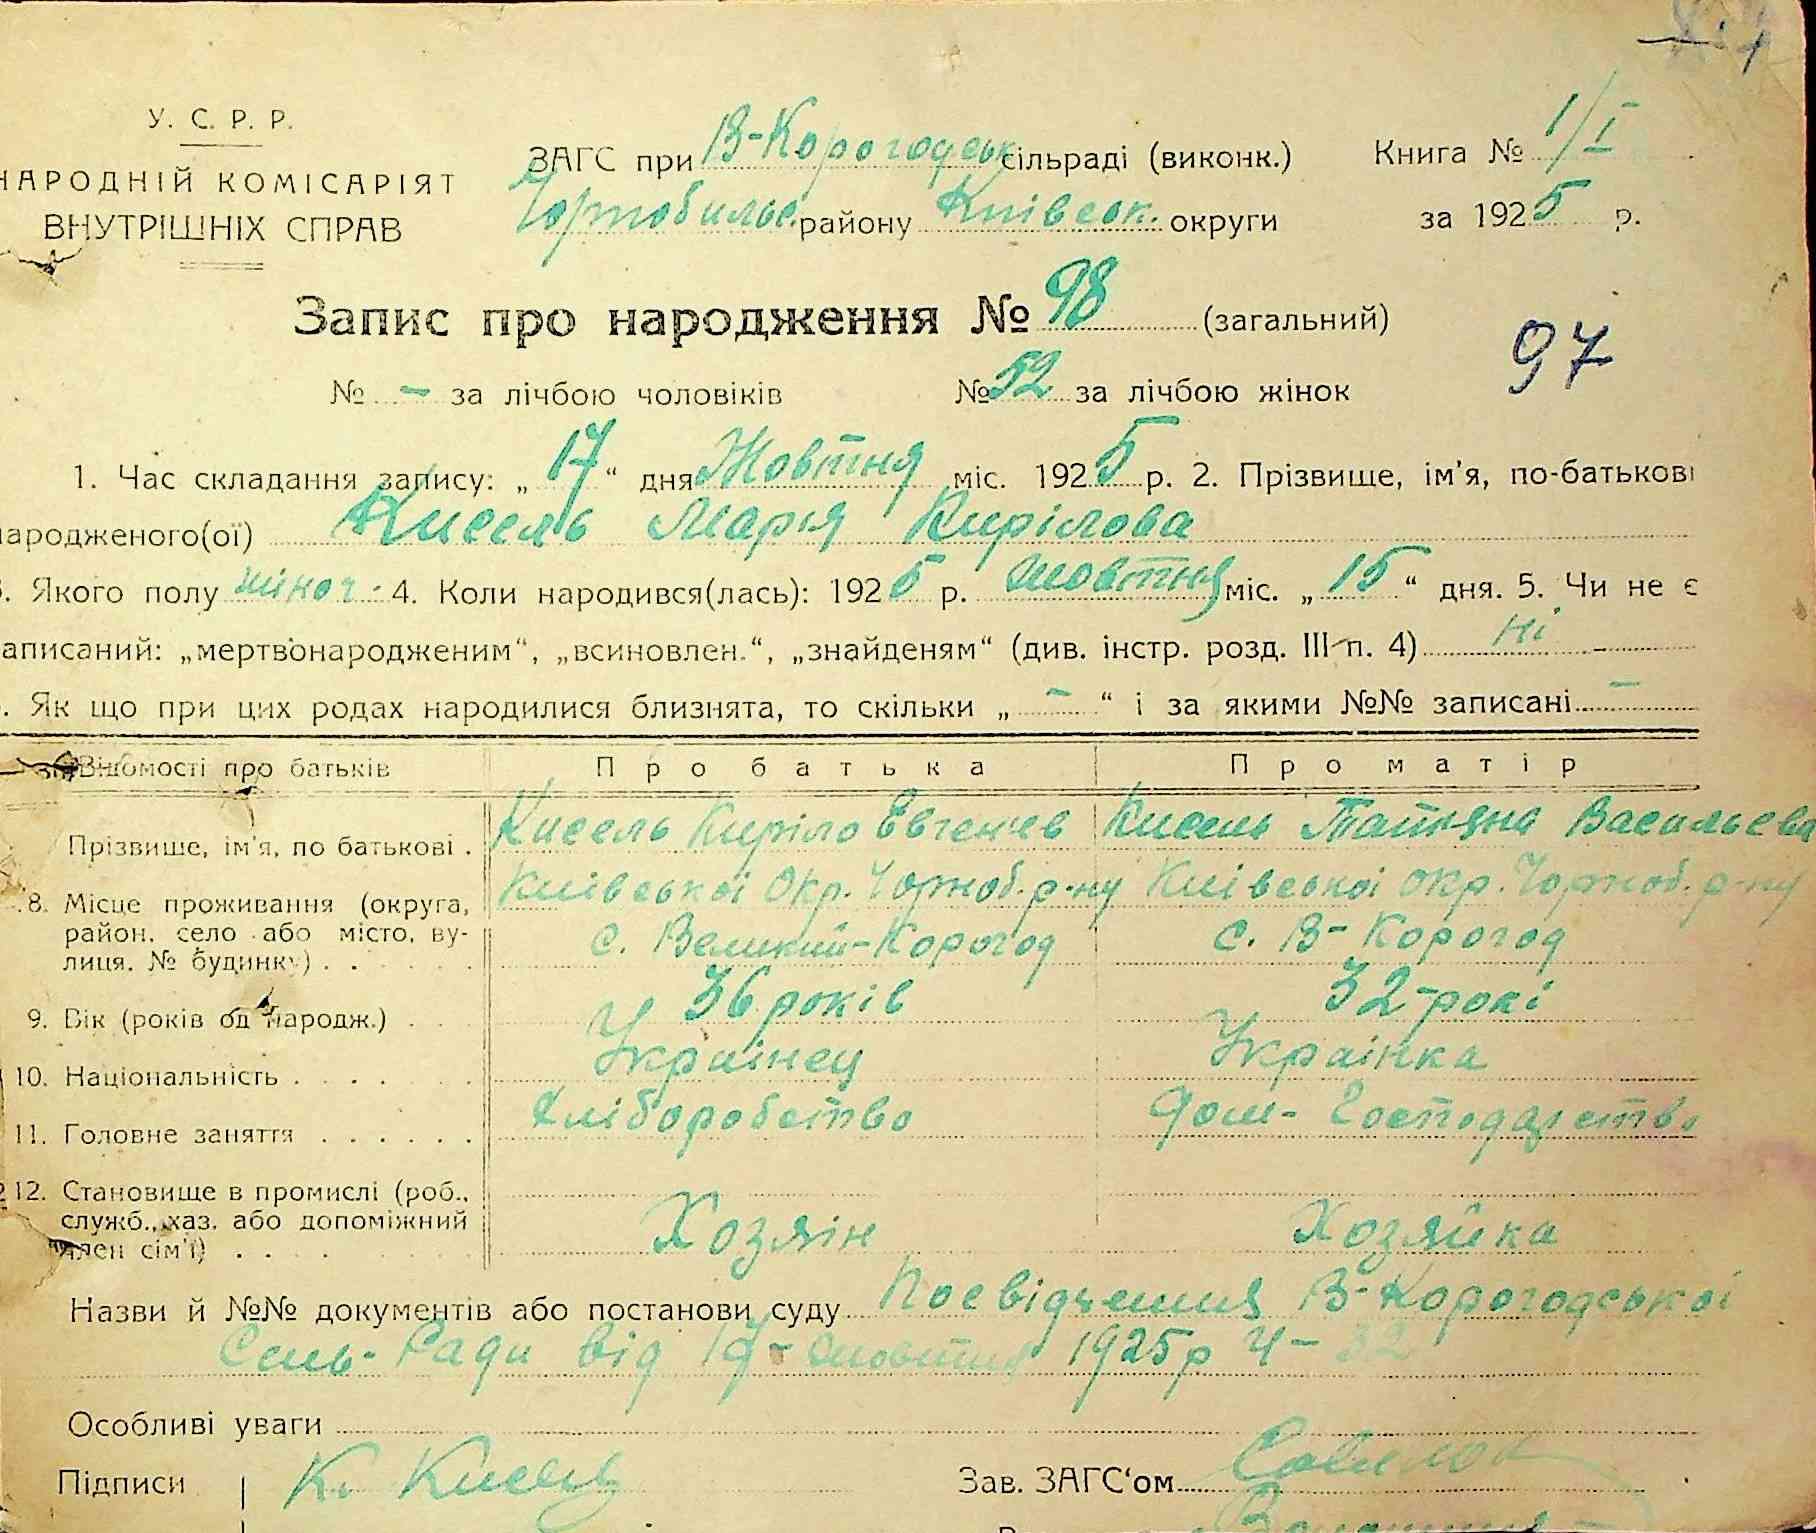 У. С. Р. Р.
НАРОДНІЙ КОМІСАРІЯТ
ВНУТРІШНІХ СПРАВ
ЗАГС при В-Корогодськ сільраді (виконк.)
Чорнобильс. району Київськ. округи
Книга № 1/I
за 1925 р.
Запис про народження № 98 (загальний)
97
№ - за лічбою чоловіків № 52 за лічбою жінок
1. Час складання запису: „17“ дня Жовтня міс. 1925 р. 2. Прізвище, ім'я, по-батькові
народженого(ої) Кисель Марія Кирілова
3. Якого полу жіноч. 4. Коли народився(лась): 1925 р. жовтня міс. „15“ дня. 5. Чи не є
записаний: „мертвонародженим“, „всиновлен.“, „знайденям“ (див. інстр. розд. III п. 4) ні
. Як що при цих родах народилися близнята, то скільки „-“ і за якими №№ записані -
Відомості про батьків Про батька Про матір
Прізвище, ім'я, по батькові . Кисель Киріло Евгеніев Кисель Татяна Васильева
8. Місце проживання (округа, район, село або місто, ву- лиця. № будинку) . Київської Окр. Чорноб. р-ну с. Великий-Корогод Київської окр. Чорноб. р-ну с. В-Корогод
9. Вік (років од народж.) 36 років 32-рокі
10. Національність Українец Українка
11. Головне заняття Хліборобство Дом-Господарство
12. Становище в промислі (роб., служб., хаз. або допоміжний член сім'ї) Хозяін Хозяйка
Назви й №№ документів або постанови суду Посвідчення В-Корогодської
Силь-Ради від 17-жовтня 1925р Ч-32
Особливі уваги
Підписи К. Кисель Зав. ЗАГС'ом